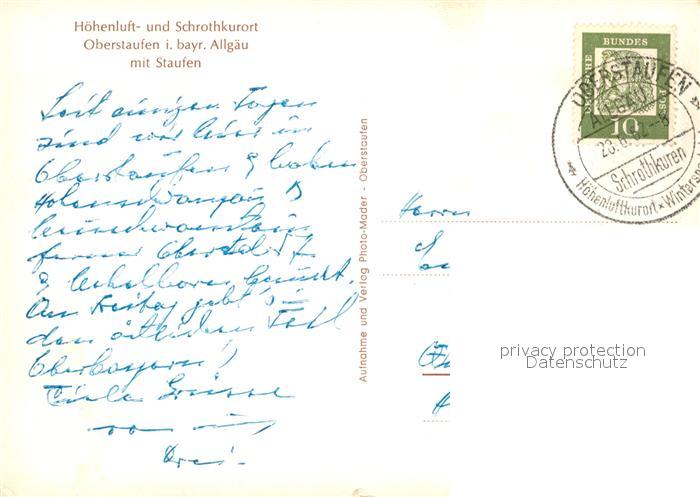 Höhenluft- und Schrothkurort
Oberstaufen i. bayr. Allgäu
mit Staufen
Seit einigen Tagen
sind wir hier in
Oberstaufen & haben
Hohenschwangau &
Neuschwanstein
ferner Oberstdorf
& Nebelhorn besucht.
Am Freitag geht's in
den östlichen Teil
Oberbayern!
Viele Grüsse
von uns
Drei.
Aufnahme und Verlag Photo-Mader - Oberstaufen
Herrn
DEUTSCHE BUNDESPOST
10
OBERSTAUFEN
ALLGÄU
Schrothkuren
Höhenluftkurort
privacy protection
Datenschutz